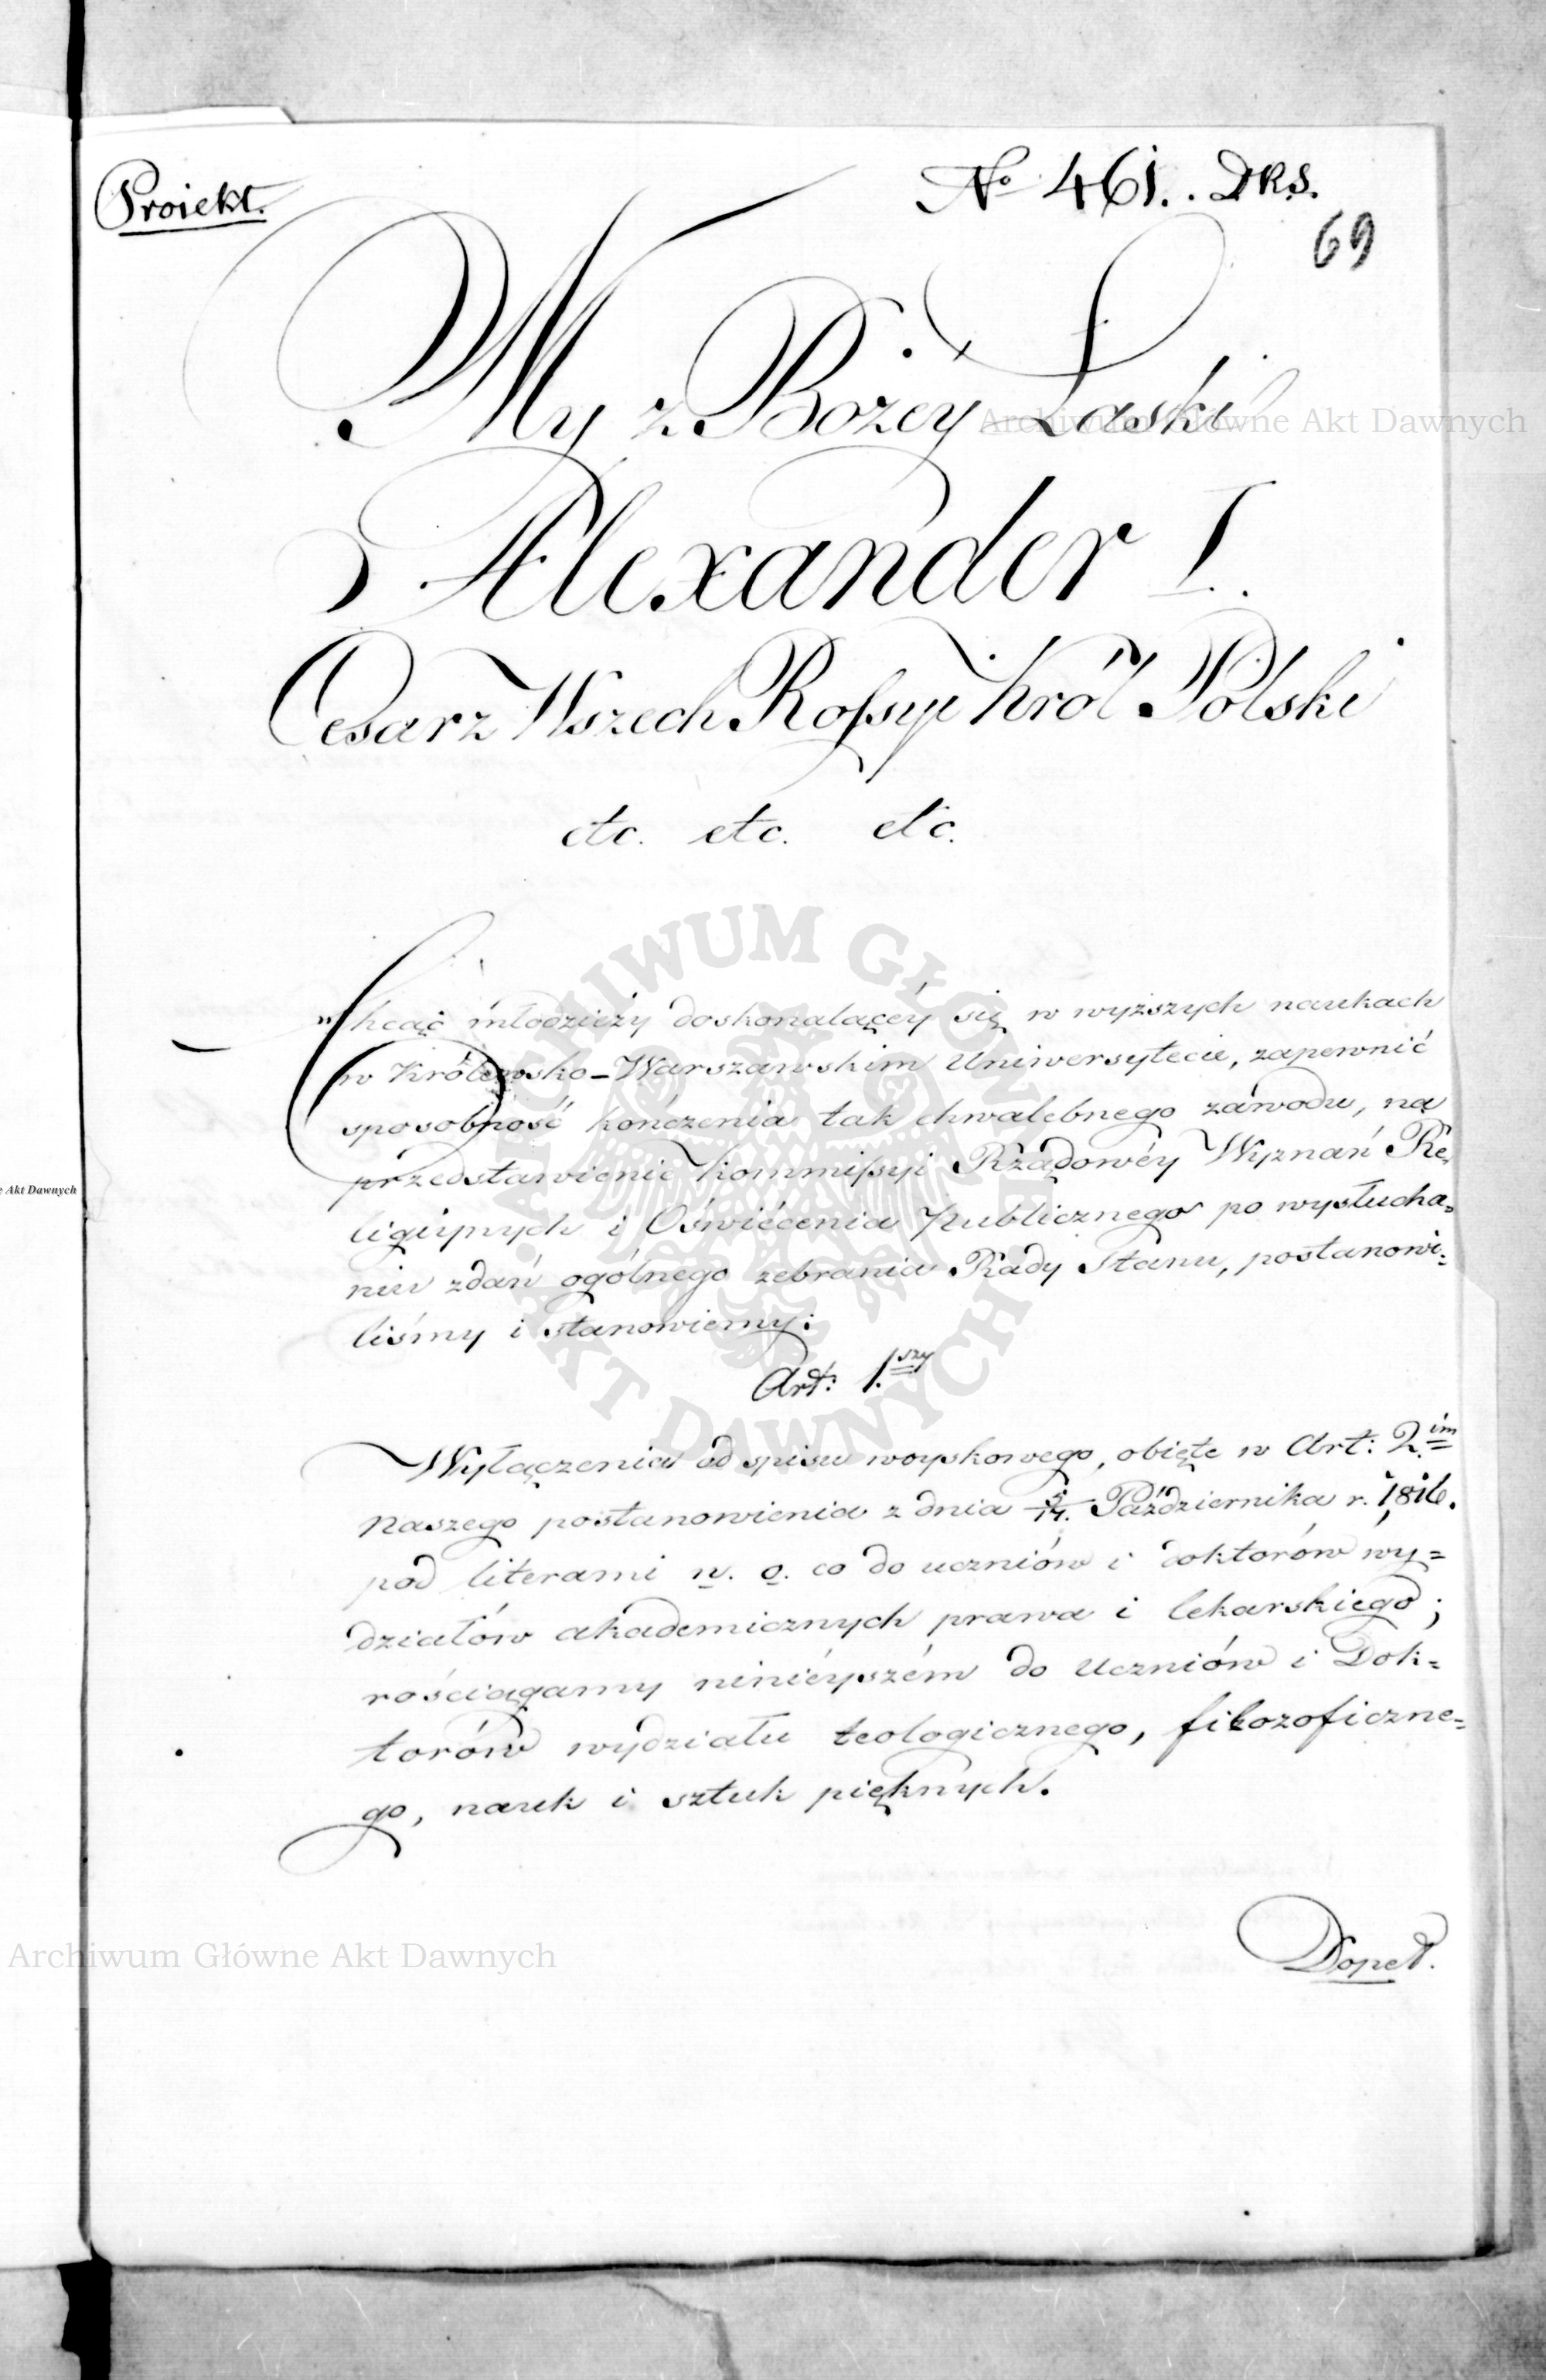 Proiekt.
No 461. DRS.
69
My z Bożey Łaski
Alexander I.
Cesarz Wszech Rossyi Król Polski
etc. etc. etc.
Chcąc młodzieży doskonalącéy się w wyższych naukach
w Królewsko-Warszawskim Uniwersytecie, zapewnić
sposobność kończenia tak chwalebnego zawodu, na
przedstawienie Kommissyi Rządowéy Wyznań Re
ligiynych i Oświécenia Publicznego po wysłucha=
niu zdań ogólnego zebrania Rady Stanu, postanowi=
liśmy i stanowiemy:
Art: 1.szy
Wyłączenia od spisu woyskowego, obięte w Art: 2.im
Naszego postanowienia z dnia Października r. 1816.
pod literami n. o. co do uczniów i doktorów wy=
działów akademicznych prawa i lekarskiego;
rościągamy ninieyszém do Uczniów i Dok=
torów wydziału teologicznego, filozoficzne=
go, nauk i sztuk pięknych.
Archiwum Główne Akt Dawnych
Archiwum Główne Akt Dawnych
ARCHIWUM GŁÓWNE
AKT DAWNYCH
e Akt Dawnych